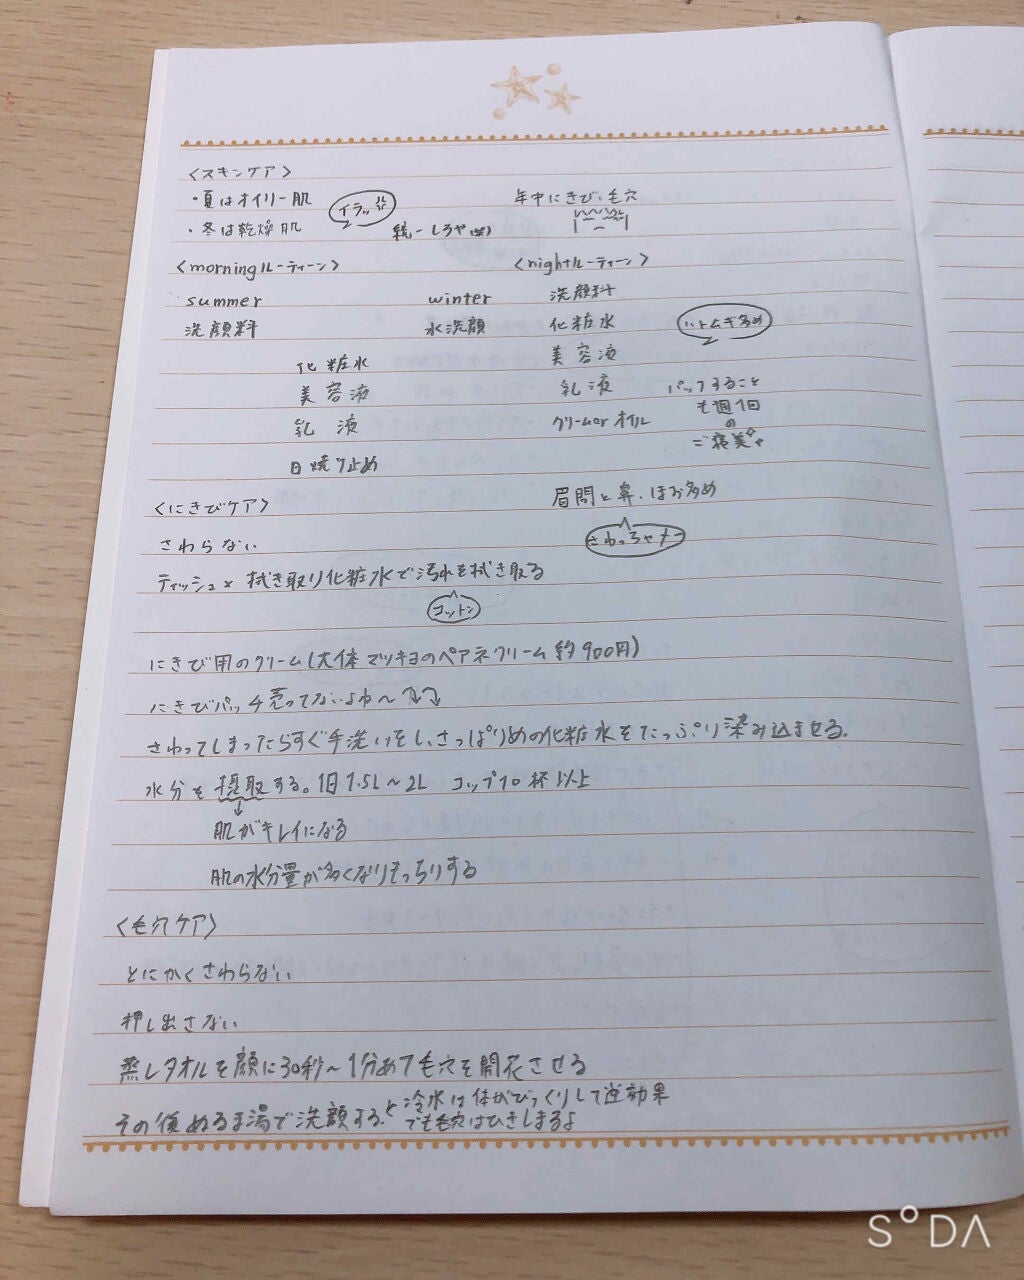 <スキンケア>
・夏はオイリー肌
イラッ
年中にきび、毛穴
・冬は乾燥肌
統一しろや(笑)
<morningルーティーン>
<nightルーティーン>
summer
winter
洗顔料
洗顔料
水洗顔
化粧水
ハトムギ多め
化粧水
美容液
美容液
乳液
乳液
パックすること
も週1回
の
ご褒美
クリームorオイル
日焼け止め
<にきびケア>
眉間と鼻、ほお多め
さわっちゃメっ
さわらない
ティッシュ×拭き取り化粧水で汚れを拭き取る
コットン
にきび用のクリーム(大体マツキヨのペアネクリーム約900円)
にきびパッチ売ってないよね〜
さわってしまったらすぐ手洗いをし、さっぱりめの化粧水をたっぷり染み込ませる.
水分を摂取する。1日1.5L〜2L コップ10杯以上
↓
肌がキレイになる
肌の水分量が多くなりもっちりする
<毛穴ケア>
とにかくさわらない
押し出さない
蒸しタオルを顔に30秒〜1分あて毛穴を開花させる
その後ぬるま湯で洗顔すると冷水は体がびっくりして逆効果
でも毛穴はひきしまるよ
S°DA